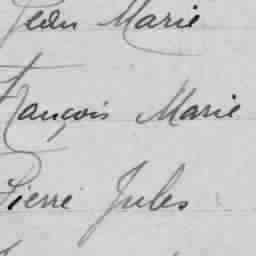 Jean Marie
François Marie
Pierre Jules